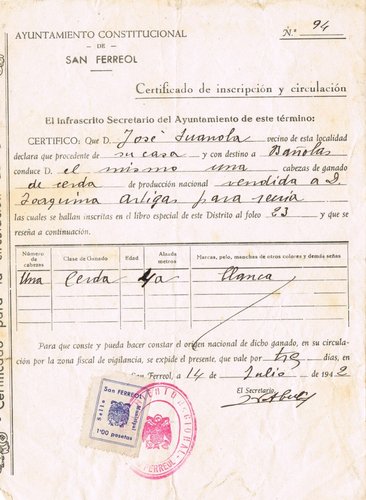 AYUNTAMIENTO CONSTITUCIONAL
— DE —
SAN FERREOL
N.º 94
Certificado de inscripción y circulación
El infrascrito Secretario del Ayuntamiento de este término:
CERTIFICO: Que D. José Juanola vecino de esta localidad
declara que procedente de su casa y con destino a Bañolas
conduce D. el mismo una cabezas de ganado
de cerda de producción nacional vendida a D.
Joaquima Artigas para recria
las cuales se hallan inscritas en el libro especial de este Distrito al foleo 23 y que se
reseña a continuación.
Número de cabezas Clase de Ganado Edad Alzada metros Marcas, pelo, manchas de otros colores y demás señas
Una Cerda 4a Blanca
Para que conste y pueda hacer constar el origen nacional de dicho ganado, en su circula-
ción por la zona fiscal de vigilancia, se expide el presente, que vale por tres días, en
San Ferreol, a 14 de Julio de 1942
El Secretario
San FERREOL
Sello Municipal
1'00 pesetas
FERREOL
Certificado para la circulación